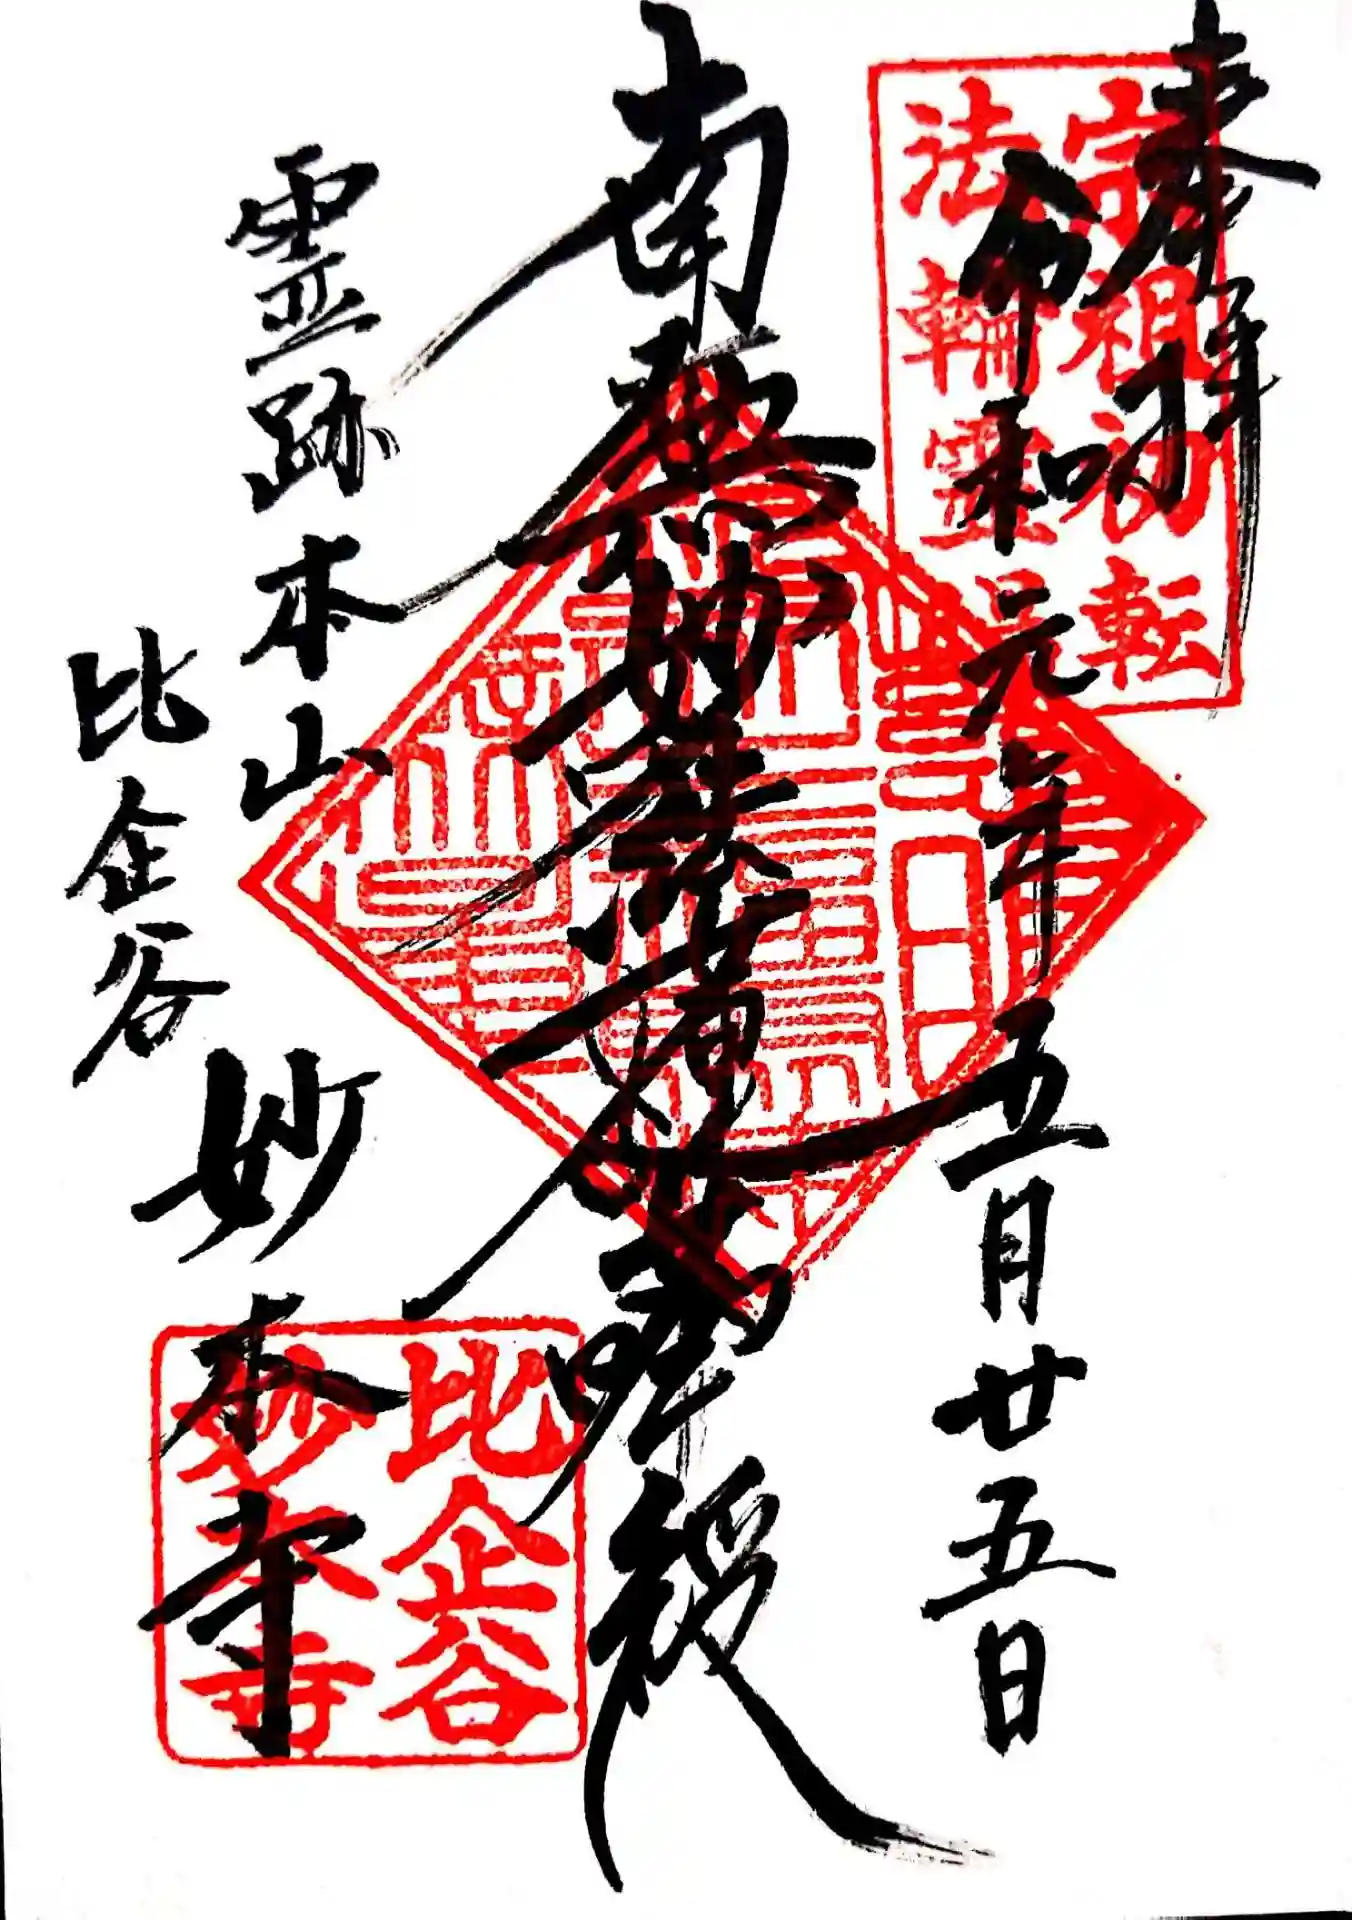 奉拝
令和元年五月廿五日
宗祖初転
法輪霊場
南無妙法蓮華経
霊跡本山
比企谷
妙本寺
比企谷
妙本寺